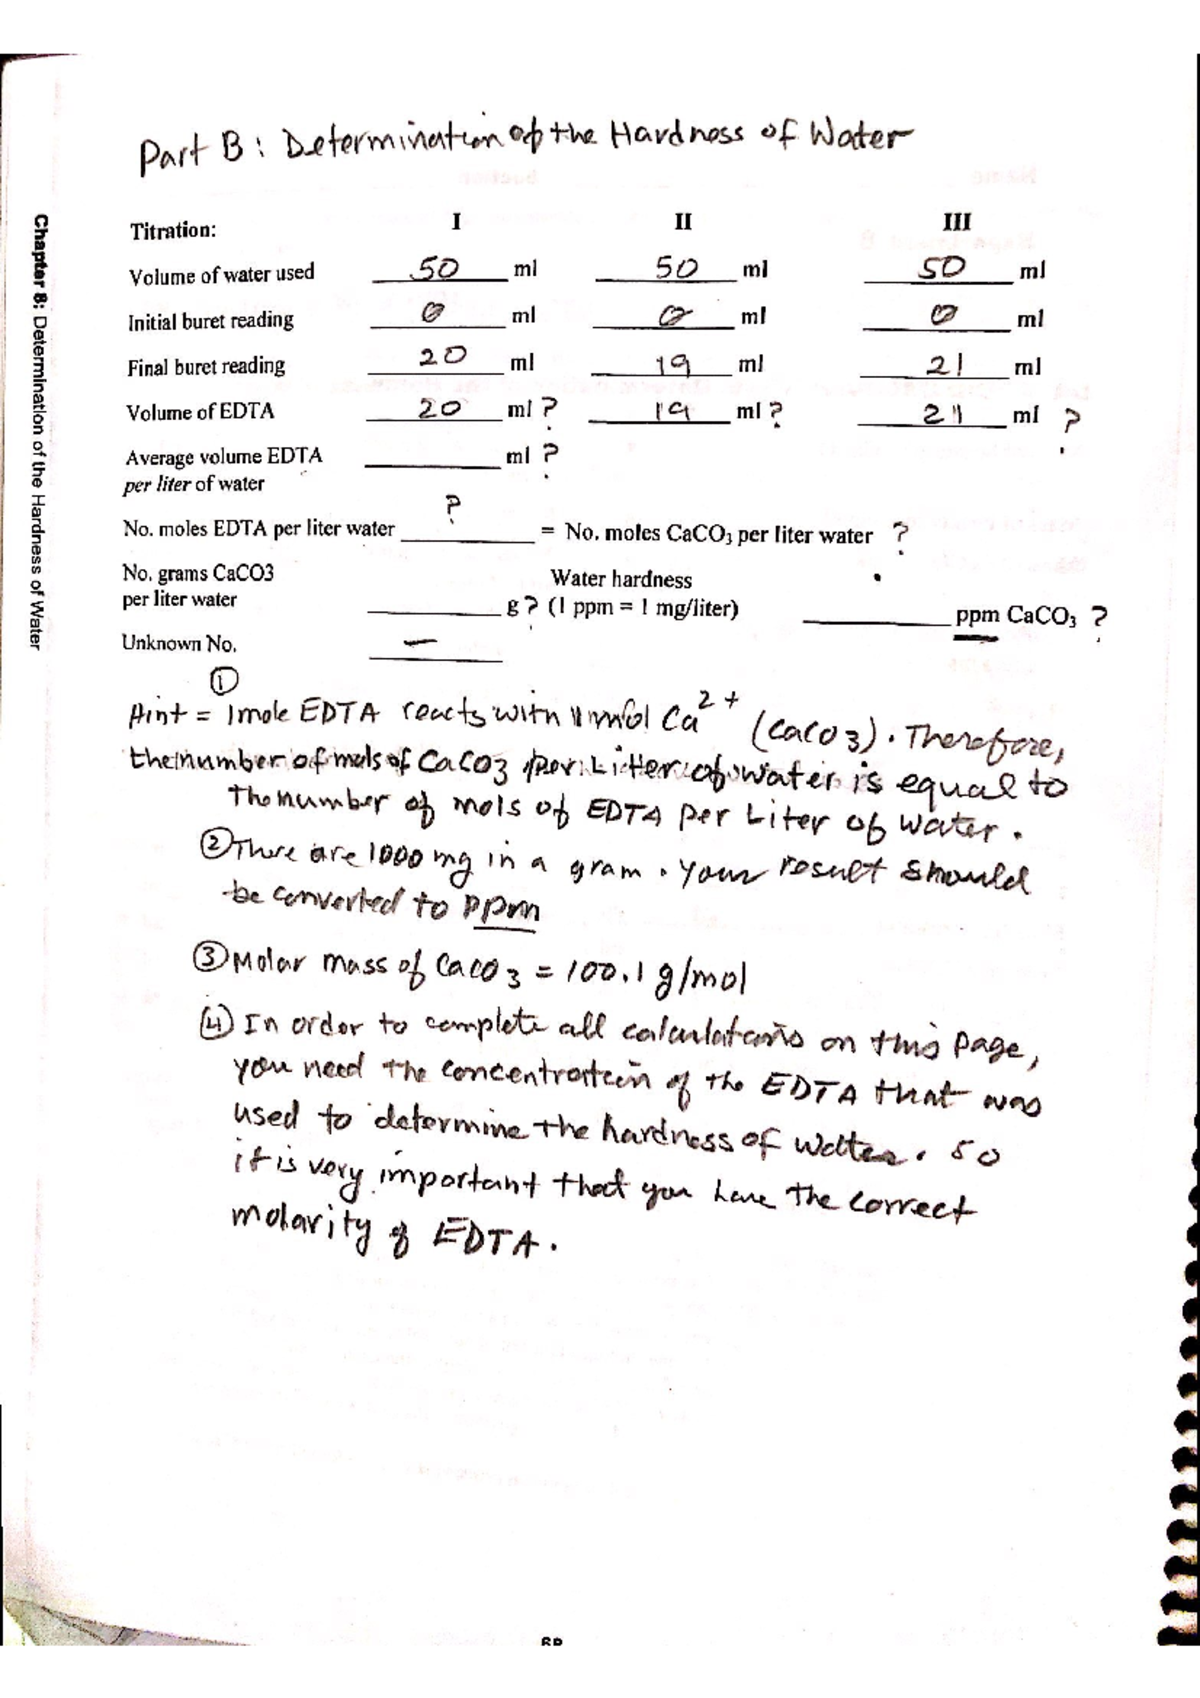 Part B: Determination of the Hardness of Water
Chapter 8: Determination of the Hardness of Water
Titration: I II III
Volume of water used 50 ml 50 ml 50 ml
Initial buret reading 0 ml 0 ml 0 ml
Final buret reading 20 ml 19 ml 21 ml
Volume of EDTA 20 ml ? 19 ml ? 21 ml ?
Average volume EDTA ml ?
per liter of water
No. moles EDTA per liter water ? = No. moles CaCO3 per liter water ?
No. grams CaCO3 Water hardness
per liter water g ? (1 ppm = 1 mg/liter) ppm CaCO3 ?
Unknown No. —
①
Hint = 1mole EDTA reacts with 1 mol Ca2+ (CaCO3). Therefore,
the number of mols of CaCO3 per Liter of water is equal to
the number of mols of EDTA per Liter of water.
② There are 1000 mg in a gram. Your result should
be converted to ppm
③ Molar mass of CaCO3 = 100.1 g/mol
④ In order to complete all calculations on this page,
you need the concentration of the EDTA that was
used to determine the hardness of water. So
it is very important that you have the correct
molarity of EDTA.